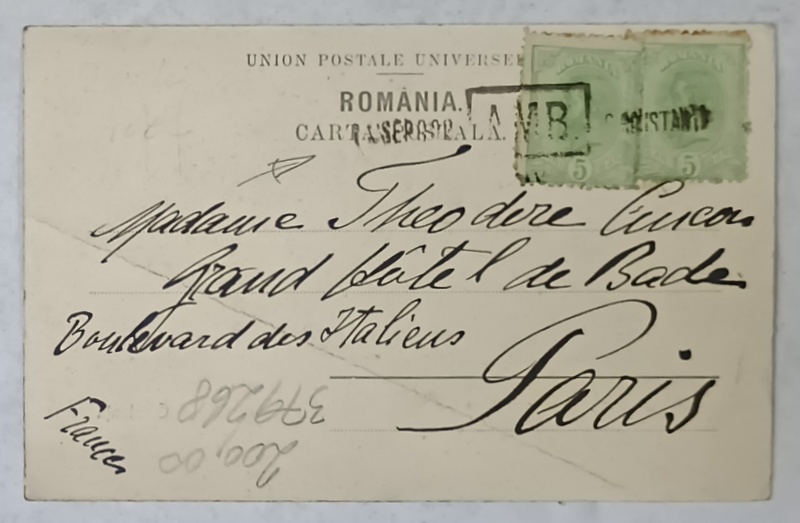 UNION POSTALE UNIVERSE
ROMÂNIA.
CARTA POSTALĂ.
AMB.
5
5
Madame Theodore
Grand Hôtel de Bade
Boulevard des Italiens
Paris
France
379268
200,00